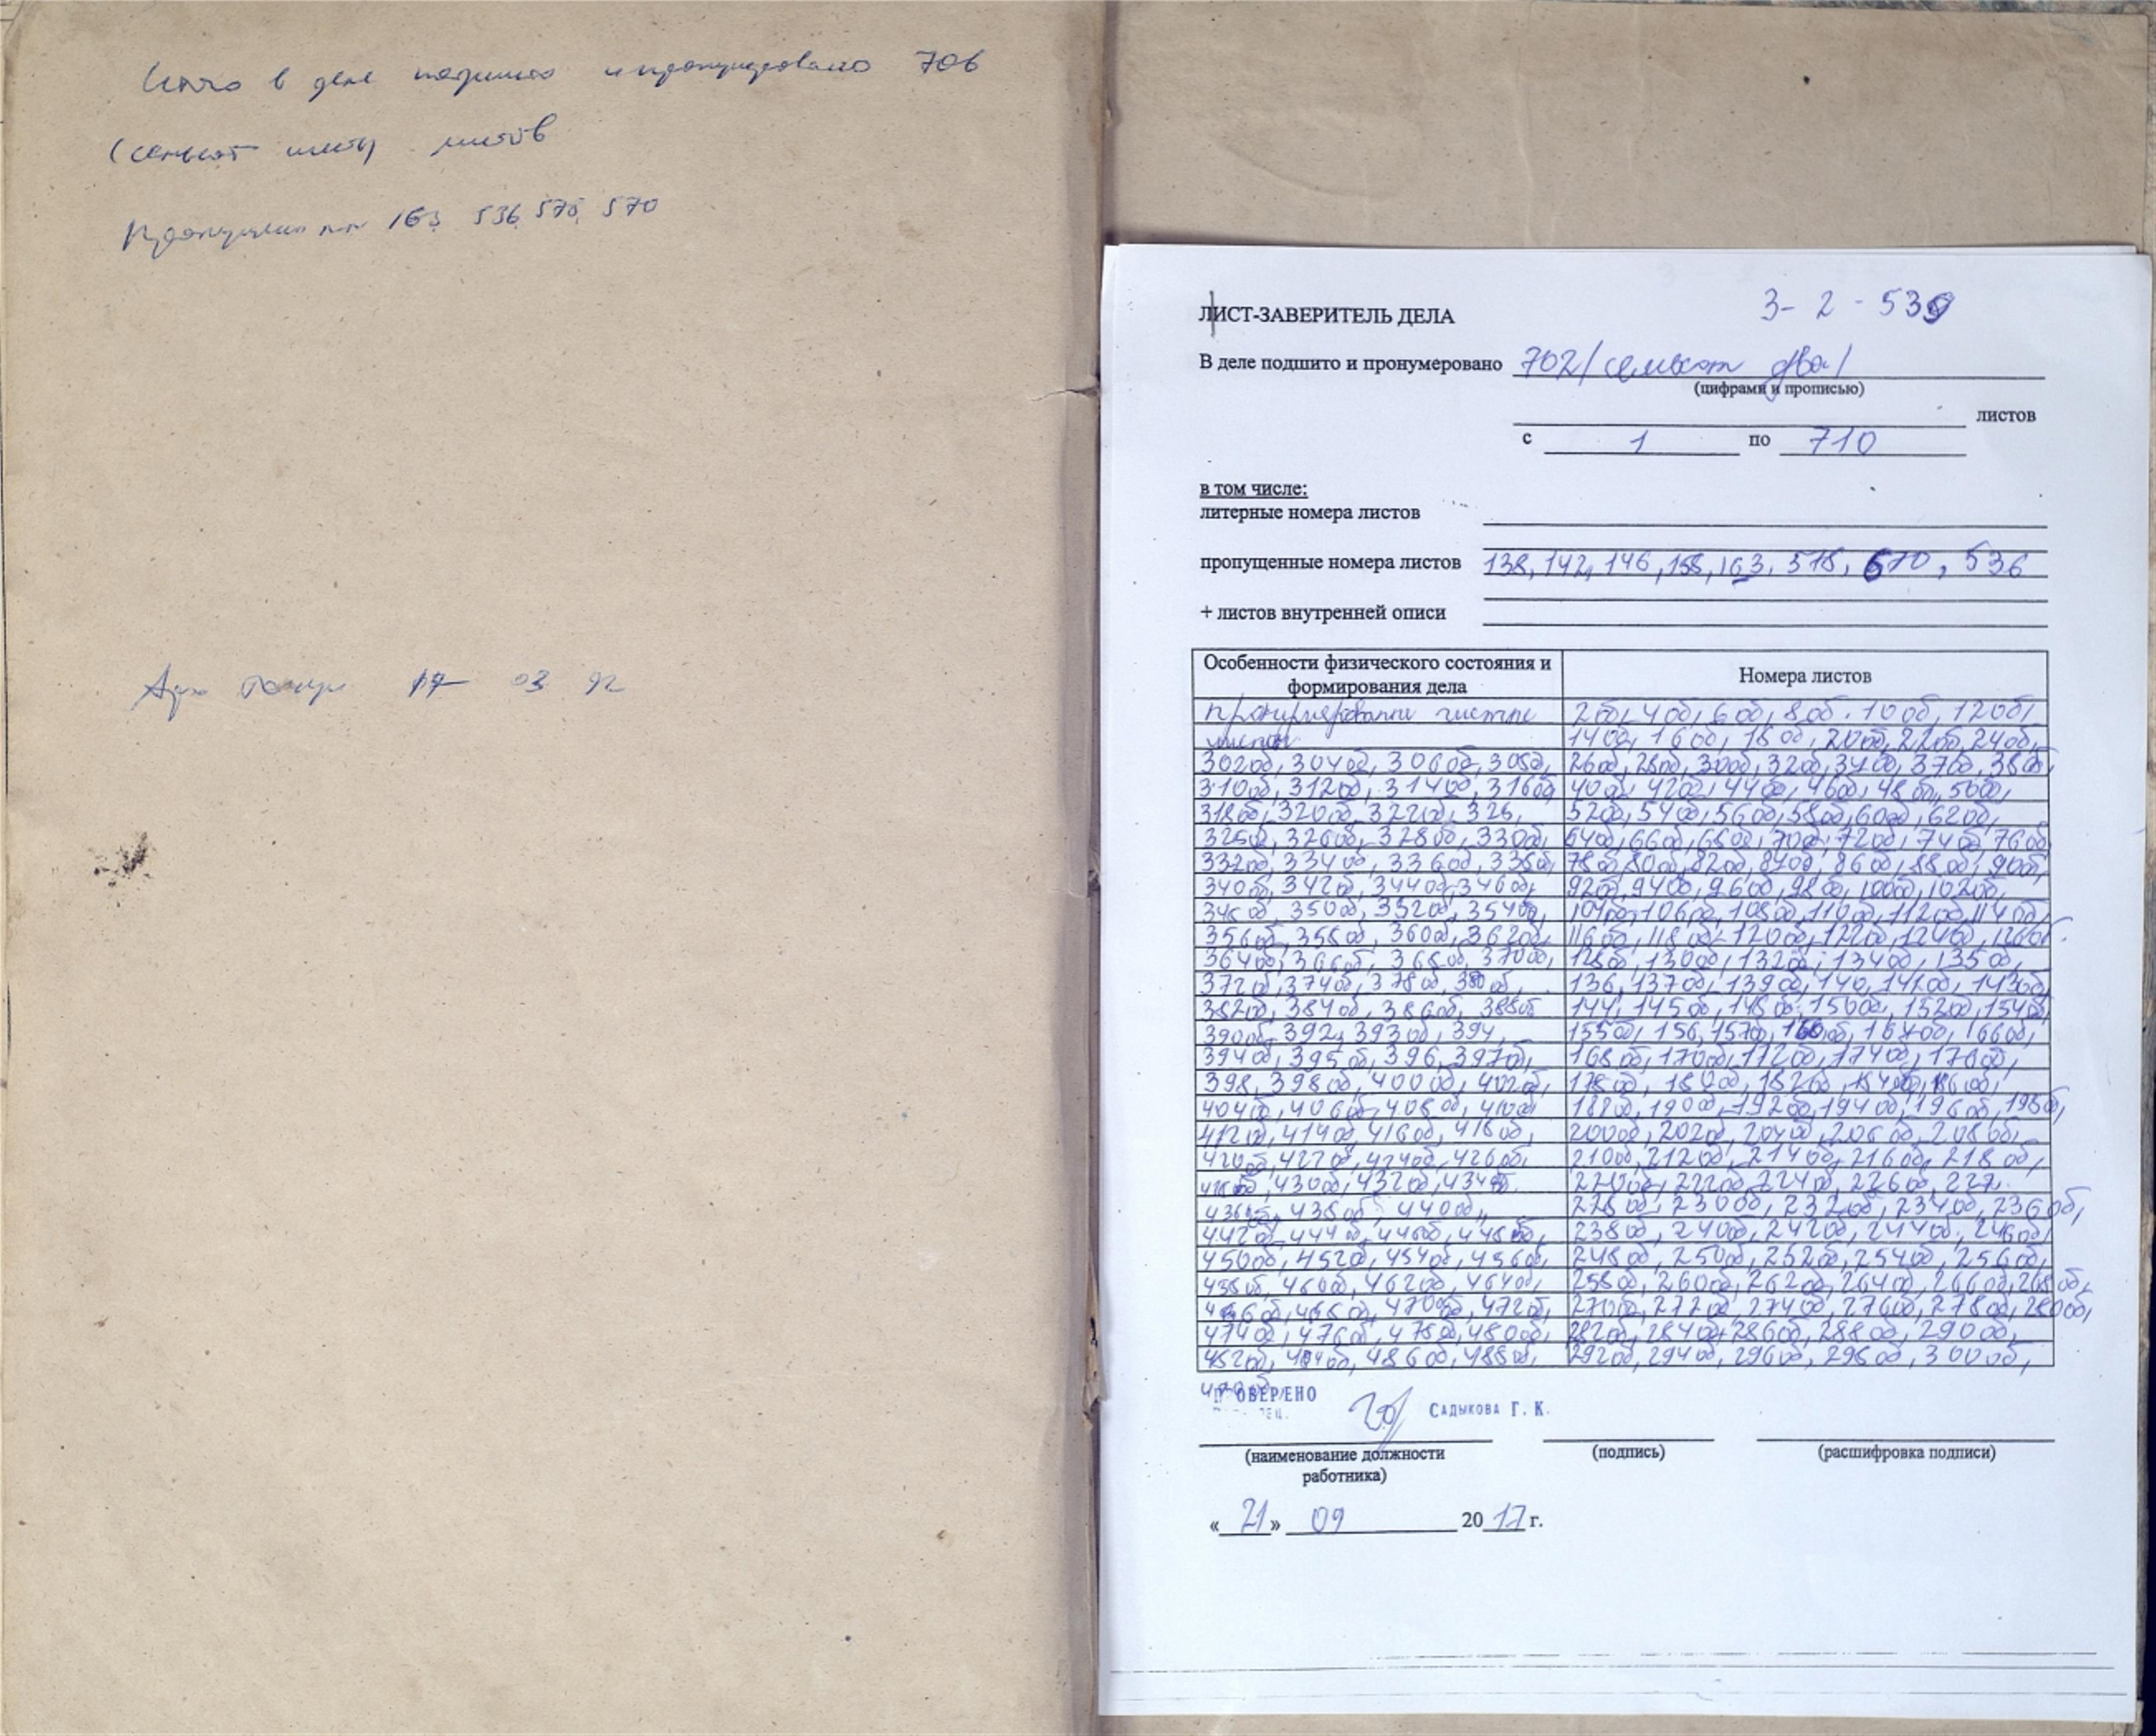 Итого в деле подшито и пронумеровано 706
(семьсот шесть) листов
Пропущены 163, 536, 570
17 03 92
3- 2 - 539
ЛИСТ-ЗАВЕРИТЕЛЬ ДЕЛА
В деле подшито и пронумеровано 702/семьсот два/
(цифрами и прописью)
листов
с 1 по 710
в том числе:
литерные номера листов
пропущенные номера листов 138, 142, 146, 158, 163, 518, 670, 536
+ листов внутренней описи
Особенности физического состояния и формирования дела Номера листов
пронумерованы чистые 2об, 4об, 6об, 8об. 10об, 12об,
листы 14об, 16об, 18об, 20об, 22об, 24об,
302об, 304об, 306об, 308об, 26об, 28об, 30об, 32об, 34об, 37об, 38об,
310об, 312об, 314об, 316об, 40об, 42об, 44об, 46об, 48об, 50об,
318об, 320об, 322об, 326, 52об, 54об, 56об, 58об, 60об, 62об,
325об, 326об, 328об, 330об, 64об, 66об, 68об, 70об, 72об, 74об, 76об
332об, 334об, 336об, 338об, 78об, 80об, 82об, 84об, 86об, 88об, 90об,
340об, 342об, 344об, 346об, 92об, 94об, 96об, 98об, 100об, 102об,
348об, 350об, 352об, 354об, 104об, 106об, 108об, 110об, 112об, 114об,
356об, 358об, 360об, 362об, 116об, 118об, 120об, 122об, 124об, 126об.
364об, 366об, 368об, 370об, 128об, 130об, 132об, 134об, 135об,
372об, 374об, 378об, 380об, 136, 137об, 139об, 140, 141об, 143об,
382об, 384об, 386об, 388об 144, 145об, 148об, 150об, 152об, 154об,
390об, 392, 393об, 394, 155об, 156, 157об, 160об, 164об, 166об,
394об, 395об, 396, 397об, 168об, 170об, 172об, 174об, 176об,
398, 398об, 400об, 402об, 178об, 180об, 182об, 184об, 186об,
404об, 406об, 408об, 410об 188об, 190об, 192об, 194об, 196об, 198об,
412об, 414об, 416об, 418об, 200об, 202об, 204об, 206об, 208об,
420об, 422об, 424об, 426об, 210об, 212об, 214об, 216об, 218об,
428об, 430об, 432об, 434об. 220об, 222об, 224об, 226об, 227,
436об, 438об, 440об, 228об, 230об, 232об, 234об, 236об,
442об, 444об, 446об, 448об, 238об, 240об, 242об, 244об, 246об,
450об, 452об, 454об, 456об, 248об, 250об, 252об, 254об, 256об,
458об, 460об, 462об, 464об, 258об, 260об, 262об, 264об, 266об, 268об,
466об, 468об, 470об, 472об, 270об, 272об, 274об, 276об, 278об, 280об,
474об, 476об, 478об, 480об, 282об, 284об, 286об, 288об, 290об,
482об, 484об, 486об, 488об, 292об, 294об, 296об, 298об, 300об,
490об,
ПРОВЕРЕНО
САДЫКОВА Г. К.
(наименование должности работника) (подпись) (расшифровка подписи)
«21» 09 2017 г.